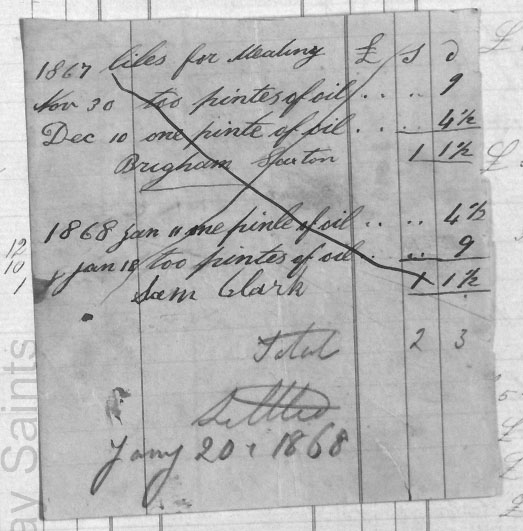 1867 liles for Mealing £ s d
Nov 30 too pintes of oil .. .. 9
Dec 10 one pinte of oil .. .. 4½
Brigham Sparton 1 1½
1868 Jan 11 one pinte of oil .. .. 4½
Jan 18 too pintes of oil . ... 9
Sam Clark 1 1½
12
10
1
Total 2 3
Settled
Jany 20 1868
ay Saints